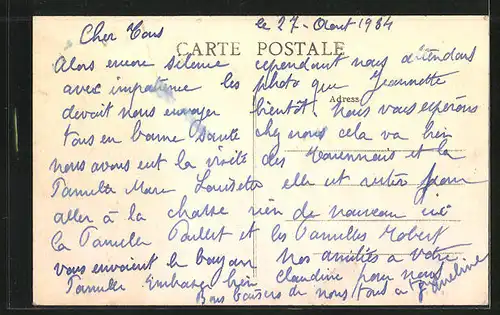 le 27 - Aout 1934
Cher Tous
CARTE POSTALE
Adresse
Alors encore silence cependant nous attendons
avec impatience les photo que Jeannette
devait nous envoyer bientôt. nous vous espérons
tous en bonne santé chez nous cela va bien
nous avons eut la visite des et la
Famille Marc Louisette elle est restée pour
aller à la chasse rien de nouveau ici
la Famille Paillet et les Familles Robert
vous envoient le nos amitiés a votre
Famille Embrasser bien Claudine pour nous
Bons baisers de nous tous a Tous